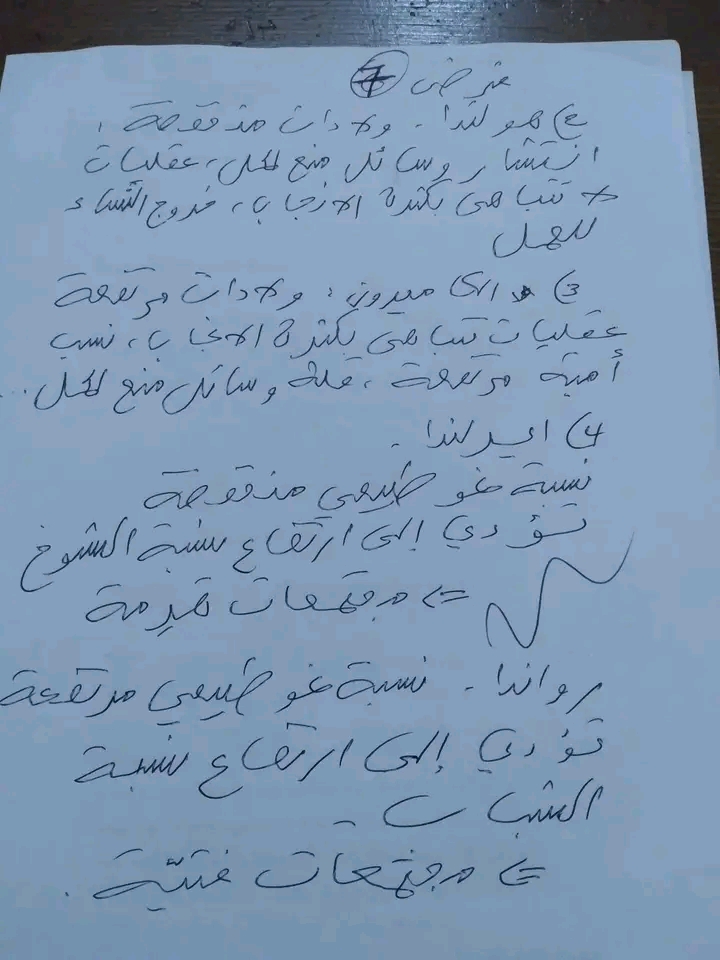 فرض 7
2) هولندا. ولادات منخفضة،
انتشار وسائل منع الحمل، عقليات
لا تتباهى بكثرة الانجاب، خروج النساء
للعمل
3) الكاميرون: ولادات مرتفعة
عقليات تتباهى بكثرة الانجاب، نسب
أمية مرتفعة، قلة وسائل منع الحمل...
4) ايرلندا.
نسبة نمو طبيعي منخفضة
تؤدي إلى ارتفاع نسبة الشيوخ
<= مجتمعات هرمة
رواندا. نسبة نمو طبيعي مرتفعة
تؤدي إلى ارتفاع نسبة
الشباب.
<= مجتمعات فتيّة.